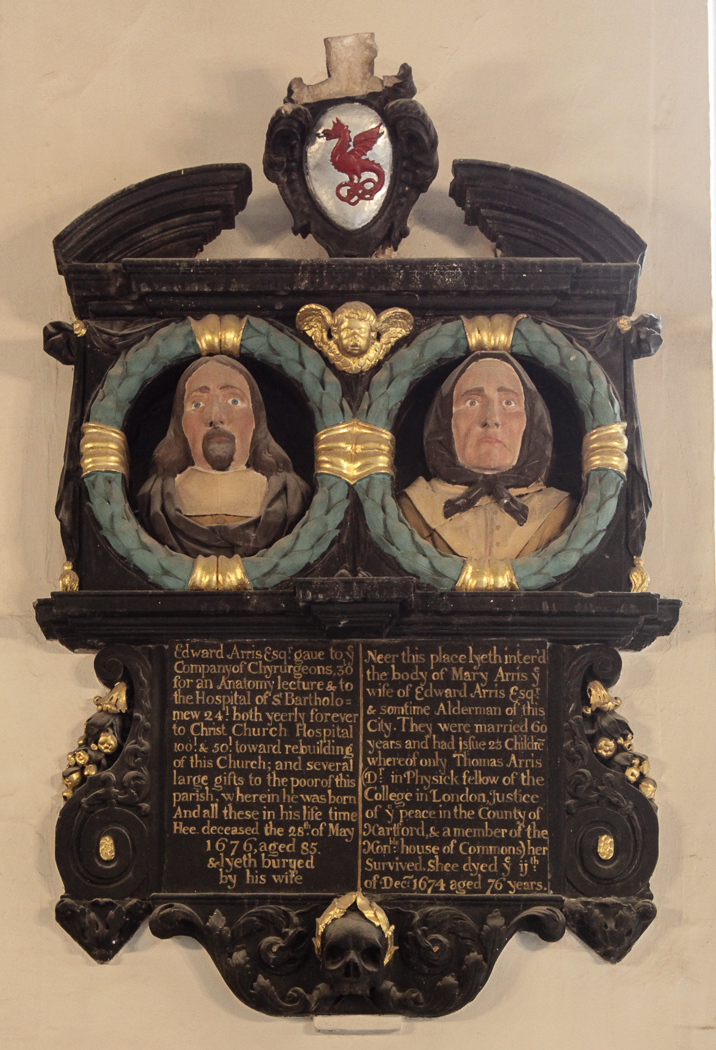 Edward Arris Esqr. gaue to ye
Company of Chyrurgeons, 30l
for an Anatomy lecture & to
the Hospital of St Bartholo=
mew 24l. both yeerly forever
to Christ Church Hospital
100l. & 50l. toward rebuilding
of this Church; and several
large gifts to the poor of this
parish, wherein he was born
And all these in his life time
Hee deceased the 28th. of May
1676, aged 85.
& lyeth buryed
by his wife
Neer this place lyeth inter'd
the body of Mary Arris ye
wife of Edward Arris Esqr.
& somtime Alderman of this
City. They were married 60
years and had issue 23 Childrē
whereof only Thomas Arris
Dr. in Physick fellow of the
College in London, Justice
of ye peace in the County of
Hartford, & a member of the
Honble. house of Commons, her
Survived. Shee dyed ye ijth
of Decr. 1674 aged 76 years.